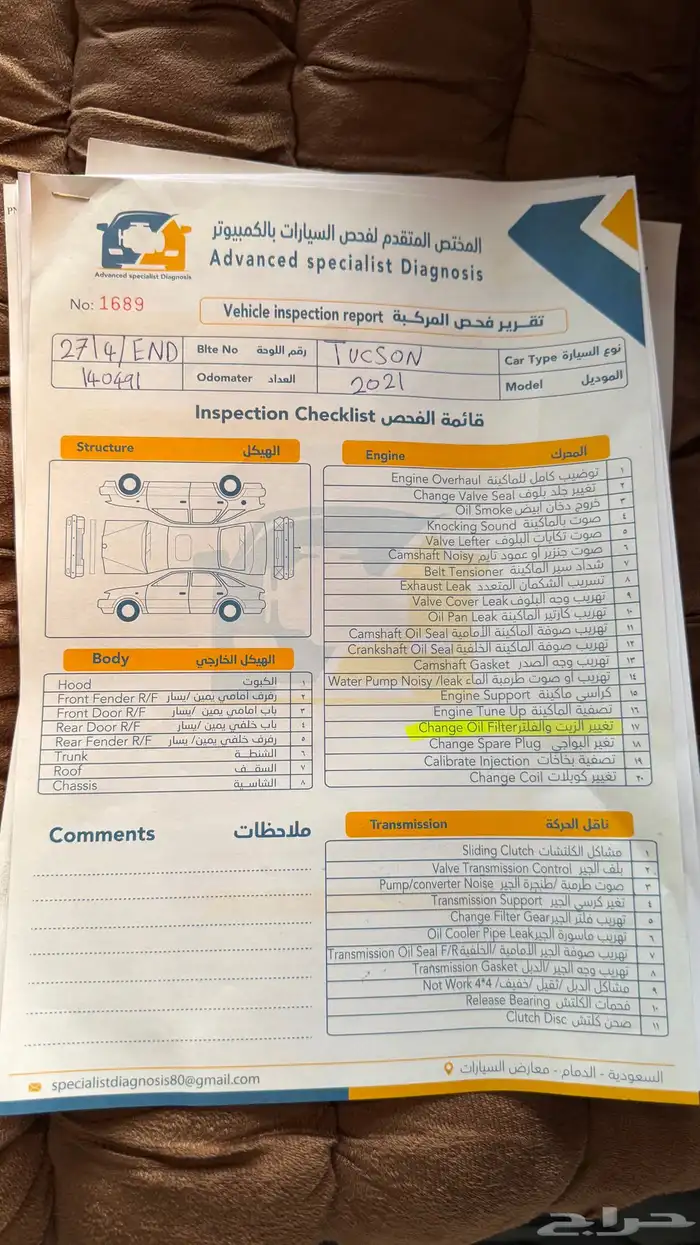 المختص المتقدم لفحص السيارات بالكمبيوتر
Advanced specialist Diagnosis
Advanced specialist Diagnosis
No: 1689
Vehicle inspection report تقرير فحص المركبة
27/4/END Blte No رقم اللوحة TUCSON Car Type نوع السيارة
140491 Odomater العداد 2021 Model الموديل
Inspection Checklist قائمة الفحص
Structure الهيكل
Engine المحرك
Engine Overhaul توضيب كامل للماكينة ١
Change Valve Seal تغيير جلد بلوف ٢
Oil Smoke خروج دخان ابيض ٣
Knocking Sound صوت بالماكينة ٤
Valve Lefter صوت تكايات البلوف ٥
Camshaft Noisy صوت جنزير او عمود تايم ٦
Belt Tensioner شداد سير الماكينة ٧
Exhaust Leak تسريب الشكمان المتعدد ٨
Valve Cover Leak تهريب وجه البلوف ٩
Oil Pan Leak تهريب كارتير الماكينة ١٠
Camshaft Oil Seal تهريب صوفة الماكينة الأمامية ١١
Crankshaft Oil Seal تهريب صوفة الماكينة الخلفية ١٢
Camshaft Gasket تهريب وجه الصدر ١٣
Water Pump Noisy /leak تهريب او صوت طرمبة الماء ١٤
Engine Support كراسي ماكينة ١٥
Engine Tune Up تصفية الماكينة ١٦
Change Oil Filter تغيير الزيت والفلتر ١٧
Change Spare Plug تغير البواجي ١٨
Calibrate Injection تصفية بخاخات ١٩
Change Coil تغيير كويلات ٢٠
Body الهيكل الخارجي
Hood الكبوت ١
Front Fender R/F رفرف امامي يمين /يسار ٢
Front Door R/F باب امامي يمين /يسار ٣
Rear Door R/F باب خلفي يمين/ يسار ٤
Rear Fender R/F رفرف خلفي يمين/ يسار ٥
Trunk الشنطة ٦
Roof السقف ٧
Chassis الشاسية ٨
Comments ملاحظات
Transmission ناقل الحركة
Sliding Clutch مشاكل الكلتشات ١
Valve Transmission Control بلف الجير ٢
Pump/converter Noise صوت طرمبة /طنجرة الجير ٣
Transmission Support تغير كرسي الجير ٤
Change Filter Gear تهريب فلتر الجير ٥
Oil Cooler Pipe Leak تهريب ماسورة الجير ٦
Transmission Oil Seal F/R تهريب صوفة الجير الأمامية /الخلفية ٧
Transmission Gasket تهريب وجه الجير /الدبل ٨
Not Work 4*4 مشاكل الدبل /ثقيل /خفيف/ ٩
Release Bearing فحمات الكلتش ١٠
Clutch Disc صحن كلتش ١١
specialistdiagnosis80@gmail.com
السعودية - الدمام - معارض السيارات
حراج